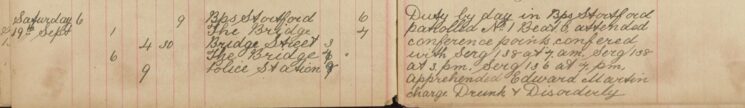 Saturday 6 9 Bps Stortford 6
19th Sept 1 The Bridge 4
4 30 Bridge Street 3
6 The Bridge
9 Police Station 9
Duty by day in Bps Stortford
patrolled No 1 Beat & attended
conference points confered
with Serg 138 at 9 am. Serg 138
at 3 pm, Serg 136 at 4 pm,
apprehended Edward Martin
charge Drunk & Disorderly